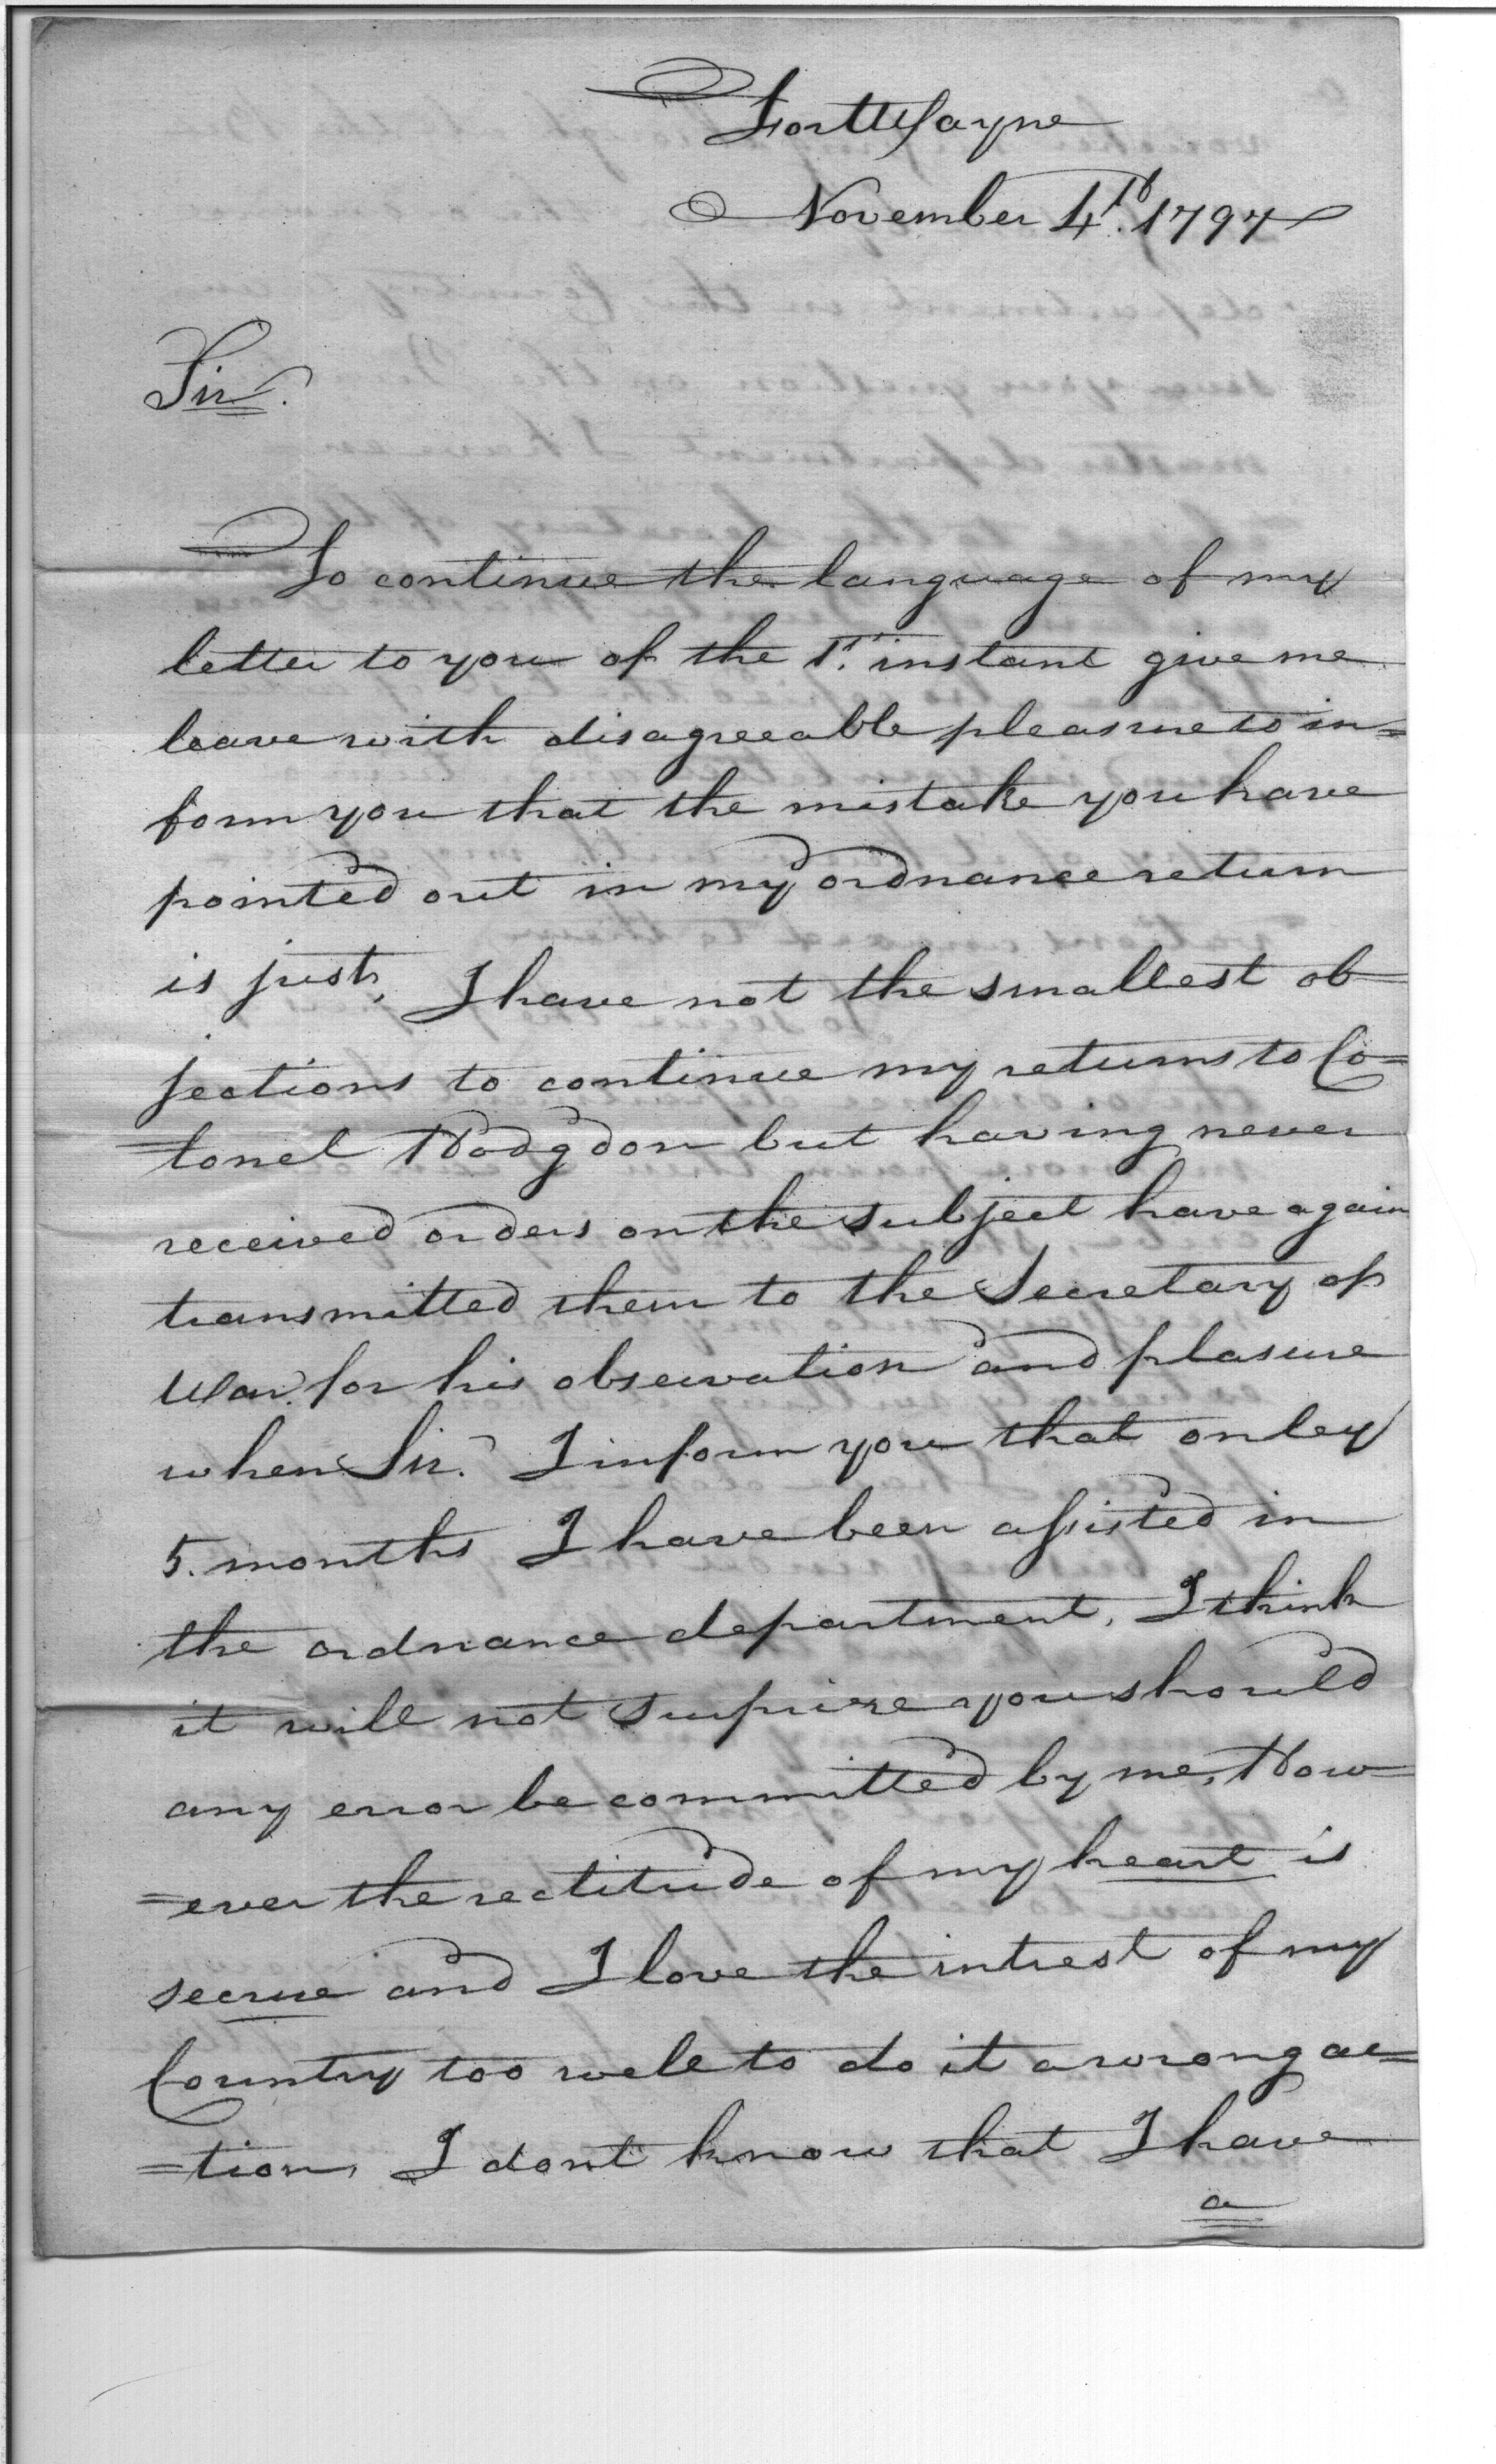 Fort Wayne
November 4th. 1797
Sir.
To continue the language of my
letter to you of the 1st. instant give me
leave with disagreeable pleasure to in=
form you that the mistake you have
pointed out in my ordnance return
is just, I have not the smallest ob=
jections to continue my returns to Co=
=lonel Hodgdon but having never
received orders on the subject have again
transmitted them to the Secretary of
War. for his observation and plasure
when Sir. I inform you that onley
5. months I have been assisted in
the ordnance department, I think
it will not surprize you should
any error be committed by me, How=
=ever the rectitude of my heart is
secrue and I love the intrest of my
Country too well to do it a wrong ac=
=tion, I dont know that I have
a